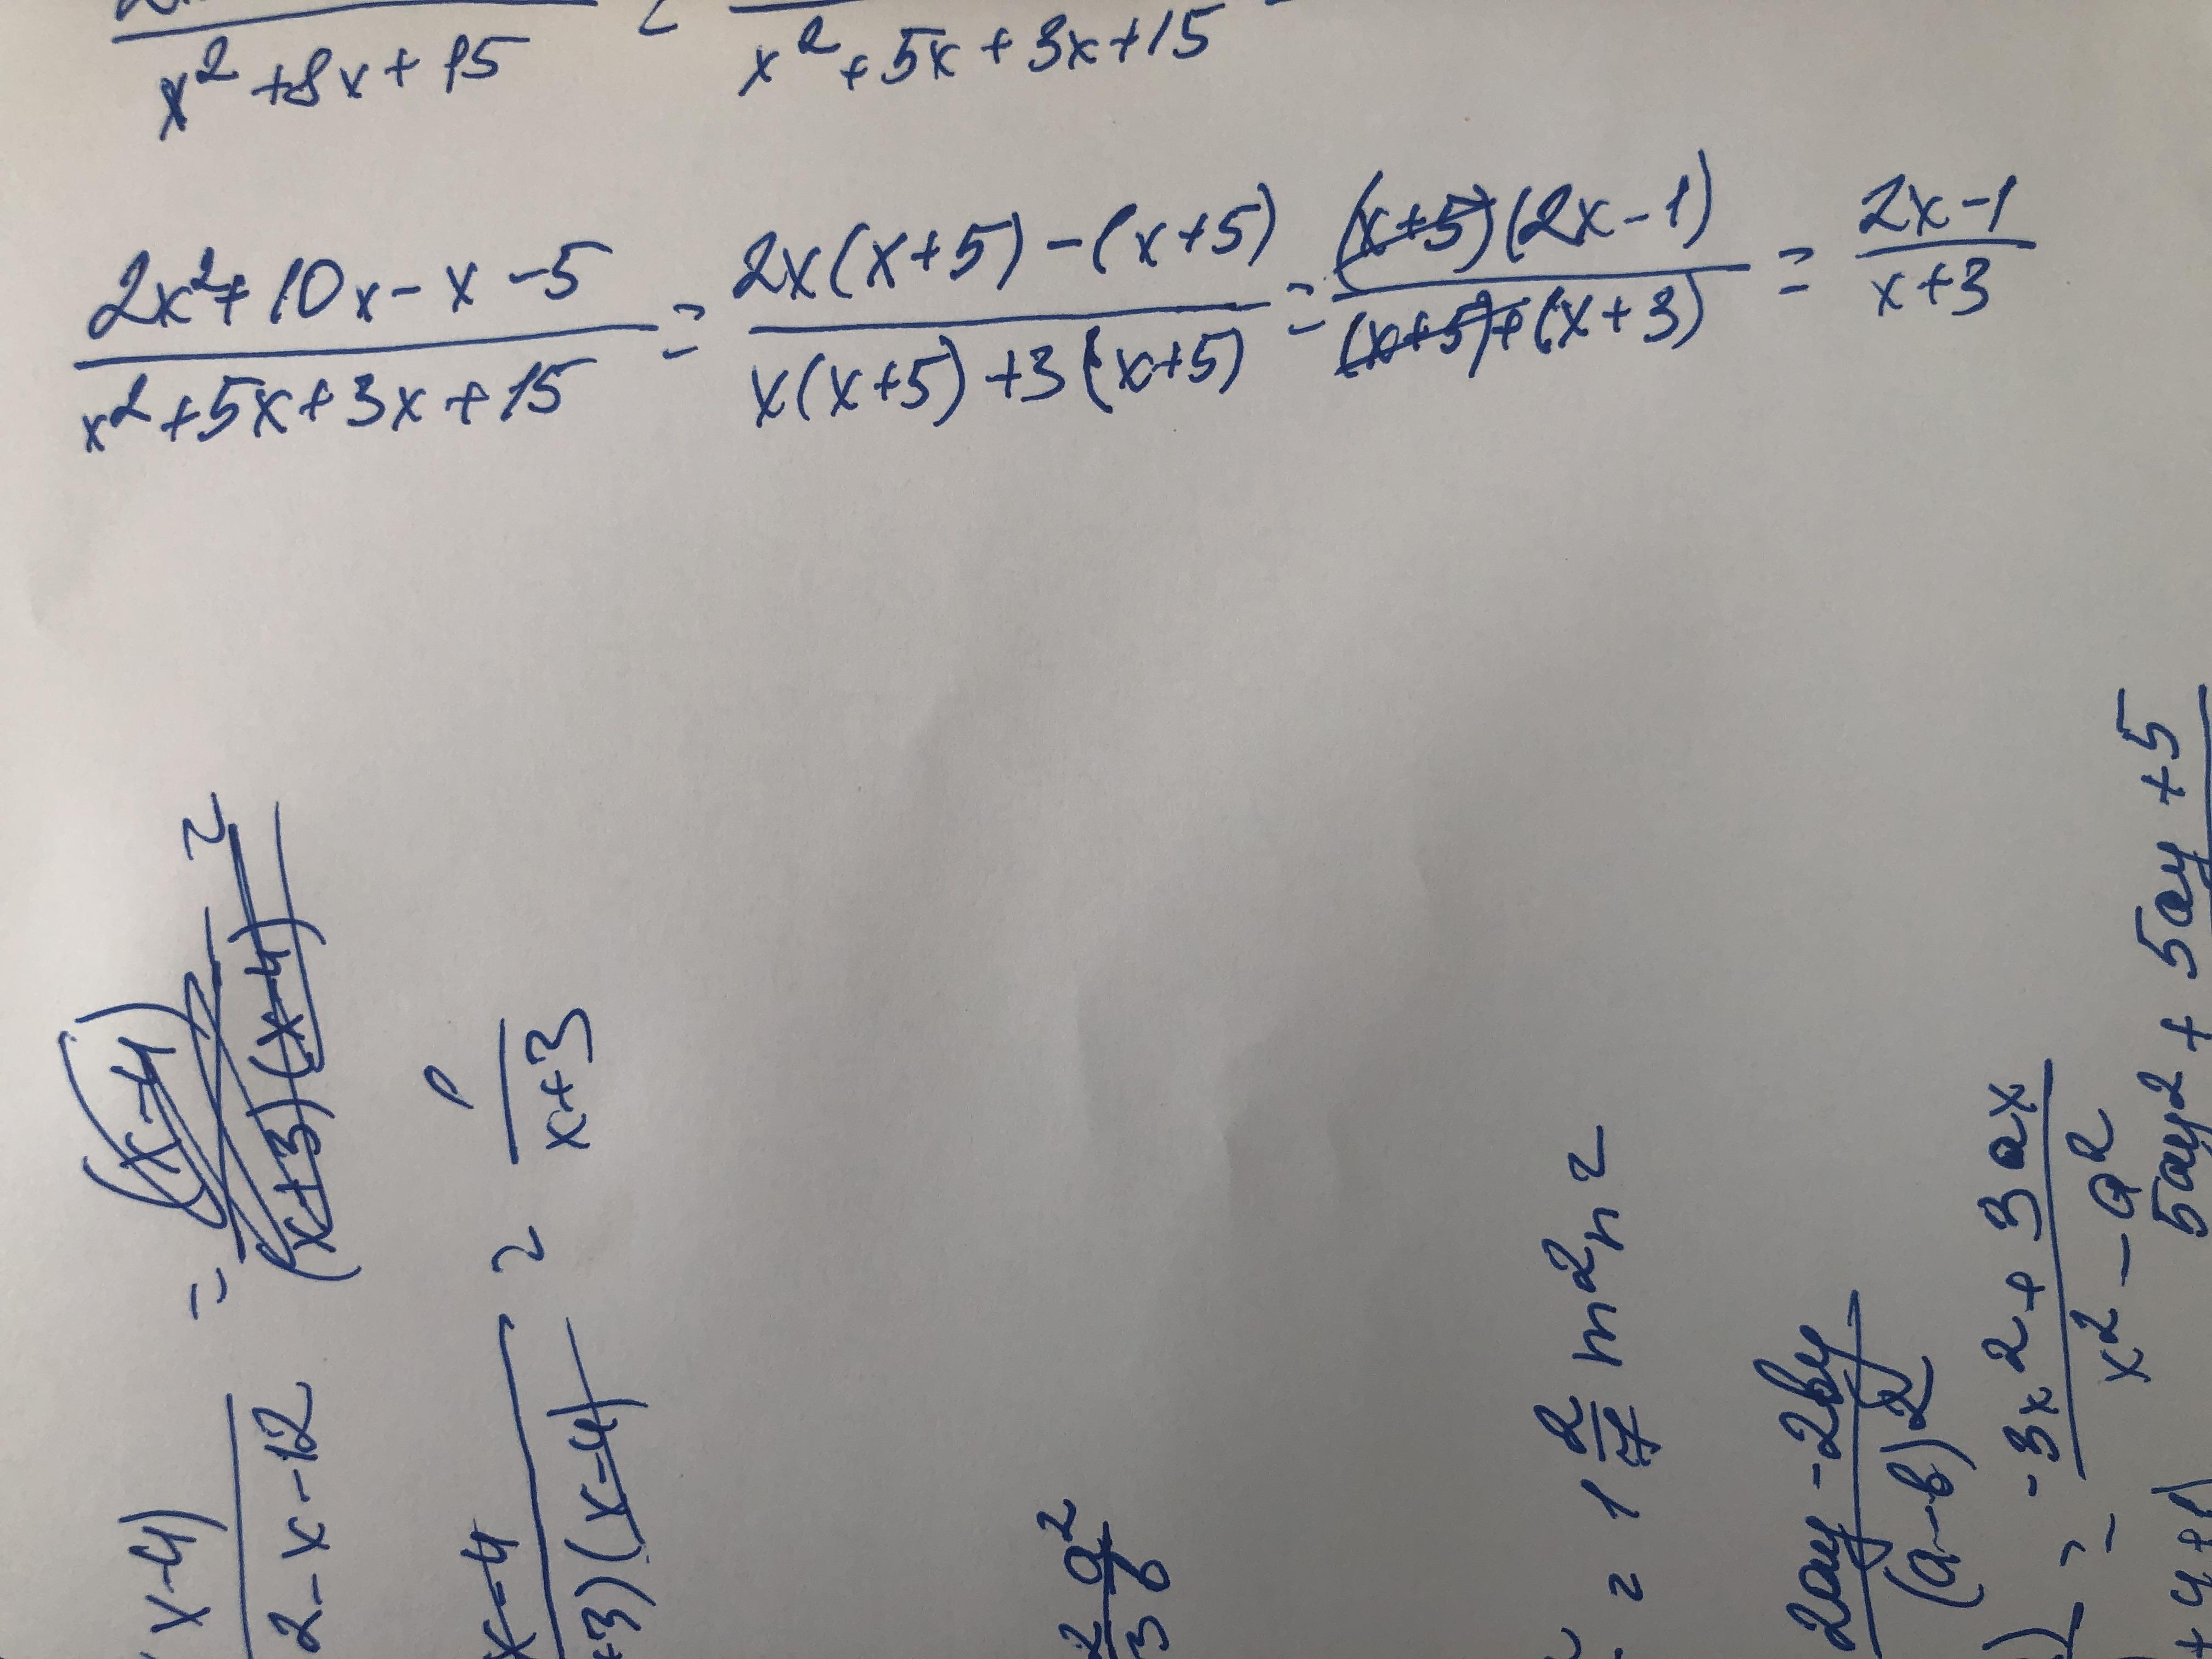 x² + 8x + 15 x² + 5x + 3x + 15
2x² + 10x - x - 5 / x² + 5x + 3x + 15 = 2x(x+5) - (x+5) / x(x+5) + 3(x+5) = (x+5)(2x-1) / (x+5)+(x+3) = 2x-1 / x+3
x-4) / 2-x-12 = (x-4) / (x+3)(x-4) =
x-4 / +3)(x-4) = 1 / x+3
= 1 2/7 m²n²
2ay - 2by / (a-b)2
= -3x² + 3ax / x² - a²
5ay² + 5ay + 5
+y+1)